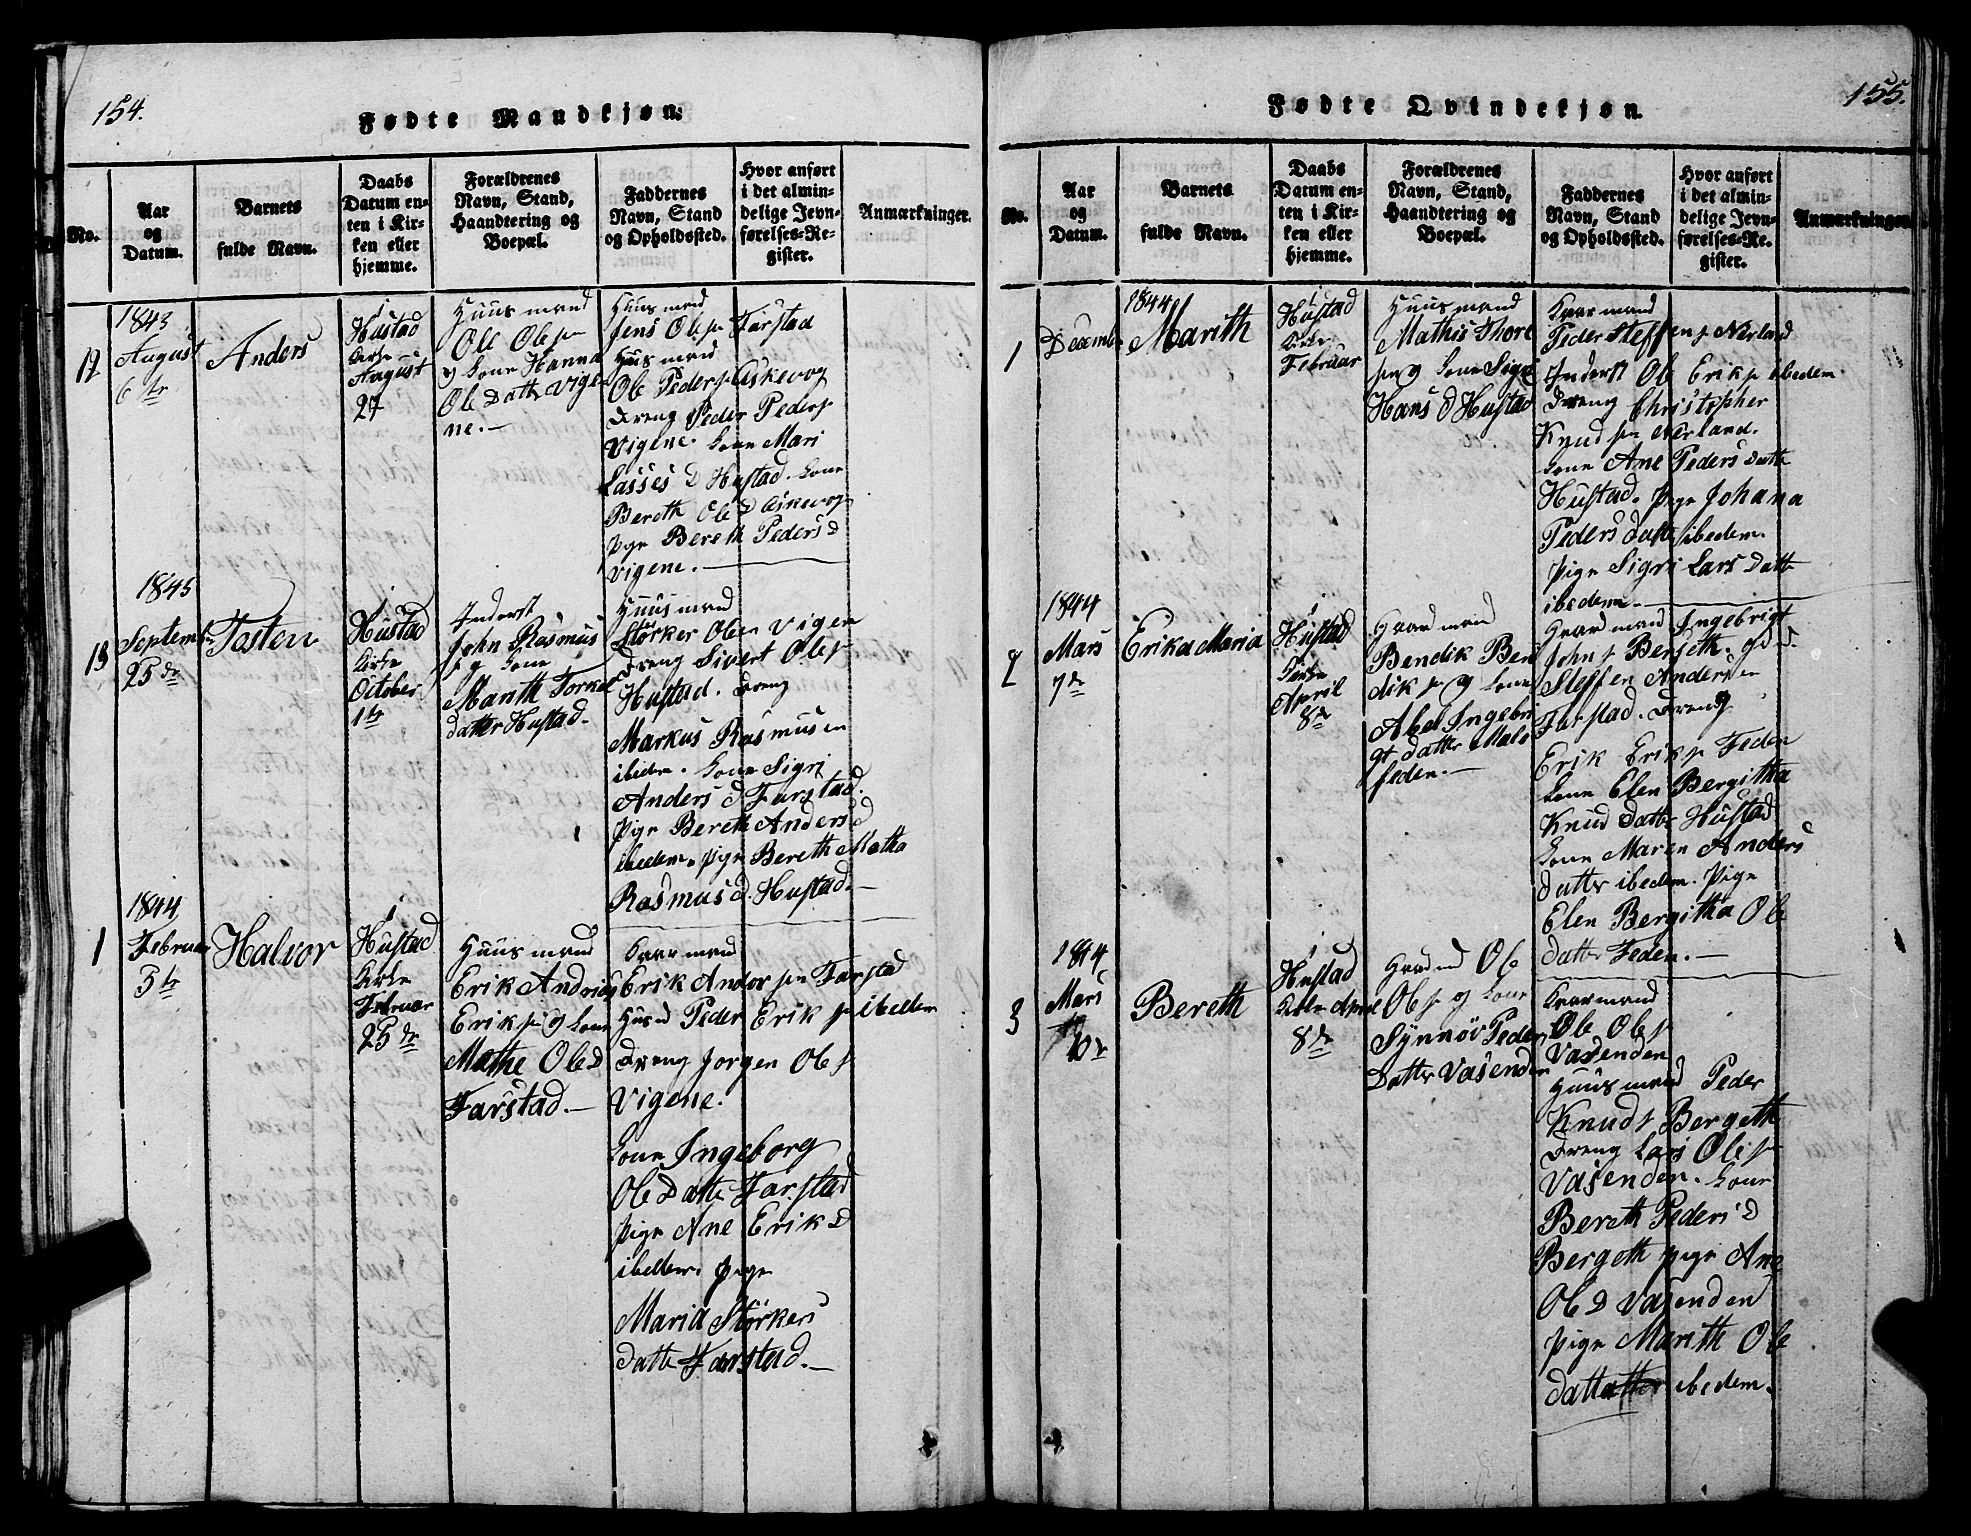 154.
Fødte Mandkjøn.
No.
Aar
og
Datum.
Barnets
fulde Navn.
Daabs
Datum en-
ten i Kir-
ken eller
hjemme.
Forældrenes
Navn, Stand,
Haandtering og
Boepæl.
Faddernes
Navn, Stand
og Opholdssted.
Hvor anført
i det almin-
delige Jevn-
førelses-Re-
gister.
Anmærkninger.
12
1843
August
6 te
Anders
i
Hustad
Kirke
August
27
Huusmand
Ole Ols
og Kone Hanna
Ole Datter Vige
ne.-
Huusmand
Jens Ols Farstad
Huusmand
Ole Peders Askevog
Dreng Peder Peders
Vigene. Kone Mari
Lasses D Hustad. Kone
Bereth Ole D Askevog
Pige Bereth Peders D
Vigene.-
13
1843
Septembr
25 de
Tosten
i
Hustad
Kirke
October
1te
Inderst
John Rasmus
og Kone
Marith Torkel
datter Hustad-
Huusmand
Størker Olsen Vigen
Dreng Sivert Ols
Hustad. Dreng
Markus Rasmusen
ibedem. Kone Sigri
Anders d Farstad.
Pige Bereth Anders d
ibedem. Pige Bereth Matha
Rasmus d. Hustad.-
1
1844
Februar
5te
Halvor
i
Hustad
Kirke
Februar
25 de
Huusmand
Erik Andrias
Erik og Kone
Mathe Ole D
Farstad.-
Gaarmand
Erik Andor Farstad
Peder Erik ibedem
Dreng Jorgen Ols
Vigene.
Kone Ingeborg
Ole Datter Farstad
Pige Ane Erik D
ibedem. Pige
Maria Størkers
Datter Farstad.-
155.
Fødte Qvindekjøn.
No.
Aar
og
Datum.
Barnets
fulde Navn.
Daabs
Datum en-
ten i Kir-
ken eller
hjemme.
Forældrenes
Navn, Stand,
Haandtering og
Boepæl.
Faddernes
Navn, Stand
og Opholdssted.
Hvor anført
i det almin-
delige Jevn-
førelses-Re-
gister.
Anmærkninger.
1
Decembr
1844
Marith
i
Hustad
Kirke
Februar
Huusmand
Mathis Thore
sen og Kone Sigri
Hans d Hustad
Gaarmand
Peder Steffens Nerland
Inderst Ole Eriks ibedem
Dreng Christopher
Knudsen Nerland.
Kone Ane Peders Datte
Hustad. Pige Johana
Peders datter ibedem.
Pige Sigri Lars Datte
ibedem.-
2
1844
Mars
7de
Erika Maria
i
Hustad
Kirke
April
8de
Gaarmand
Bendik Ben
diks og Kone
Abel Ingebri
gt datter Male
feden.-
Gaarmand Ingebrigt
Johns Bergeth. gd.
Steffen Andersen
Farstad. Dreng
Erik Eriks Feden
Kone Elen Bergitha
Knud Datter Hustad
Kone Maren Anders
datter ibedem. Pige
Elen Bergitha Ole
datter Feden.-
3
1844
Mars
10de
Bereth
i
Hustad
Kirke April
8de
Ole
Ols og Kone
Synnøv Peder
Datter Vasenden
Gaarmand
Ole Ols
Vasenden
Huusmand Peder
Knuds Bergeth
Dreng Lars Ols
Vasenden. Kone
Bereth Peders D
Bergeth Pige Ane
Ole D Vasenden
Pige Marith Ole
datter ibedem.